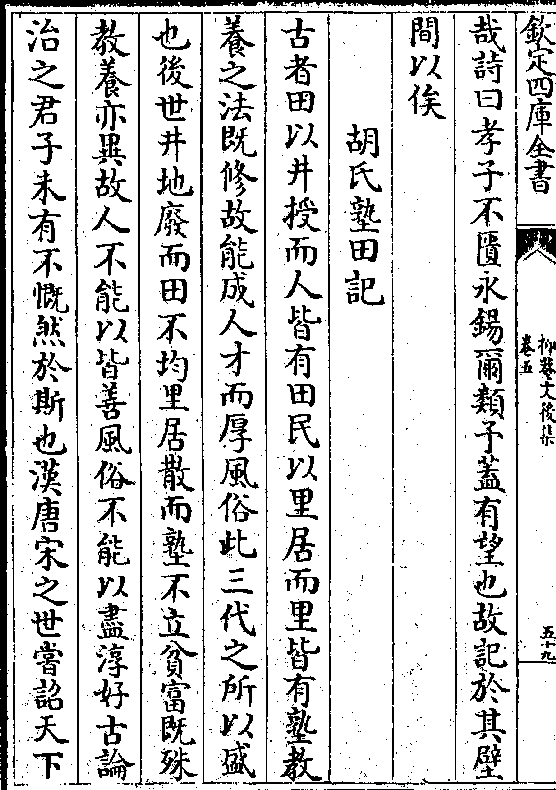 欽定四庫全書
抑菴文後集
卷五
五十九
哉詩曰孝子不匱永錫爾類子蓋有望也故記於其壁
間以俟
胡氏塾田記
古者田以井授而人皆有田民以里居而里皆有塾教
養之法既修故能成人才而厚風俗此三代之所以盛
也後世井地廢而田不均里居散而塾不立貧富既殊
教養亦異故人不能以皆善風俗不能以盡淳好古論
治之君子未有不慨然於斯也漢唐宋之世嘗詔天下